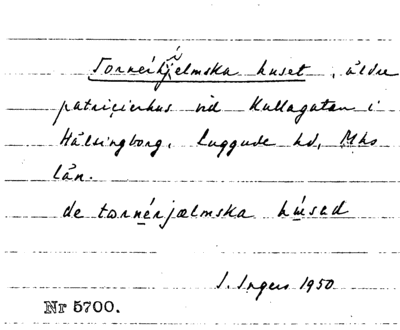 Tornérhjelmska huset, äldre
patricierhus vid Kullagatan i
Hälsingborg, Luggude hd, Mhs
län.
de tornérjælmska húsed
I. Ingers 1950
Nr 5700.